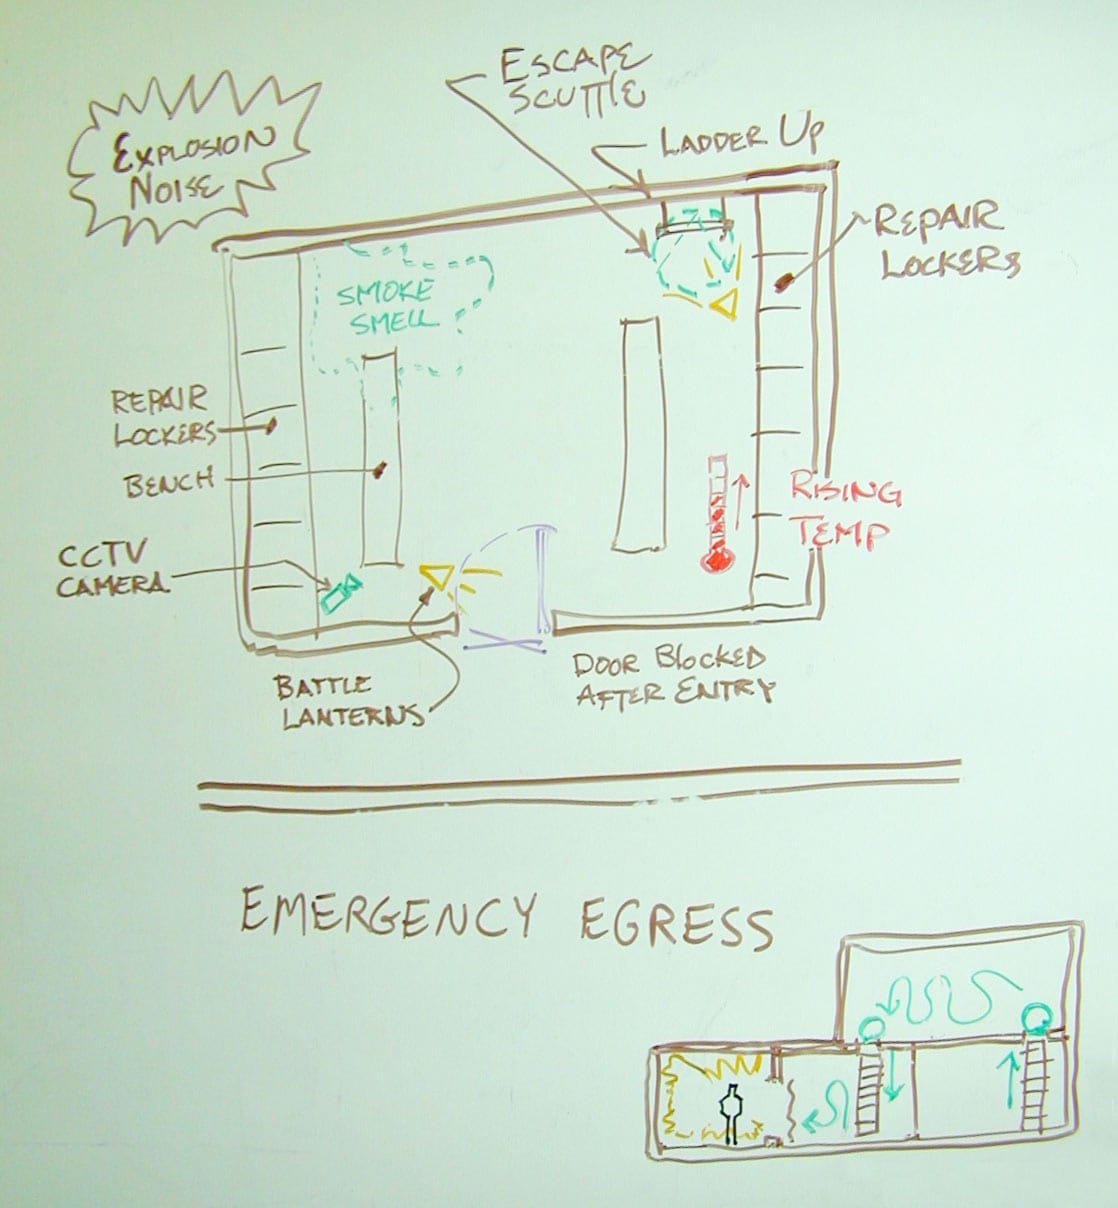 ESCAPE
SCUTTLE
LADDER UP
EXPLOSION
NOISE
REPAIR
LOCKERS
SMOKE
SMELL
REPAIR
LOCKERS
BENCH
RISING
TEMP
CCTV
CAMERA
BATTLE
LANTERNS
DOOR BLOCKED
AFTER ENTRY
EMERGENCY EGRESS